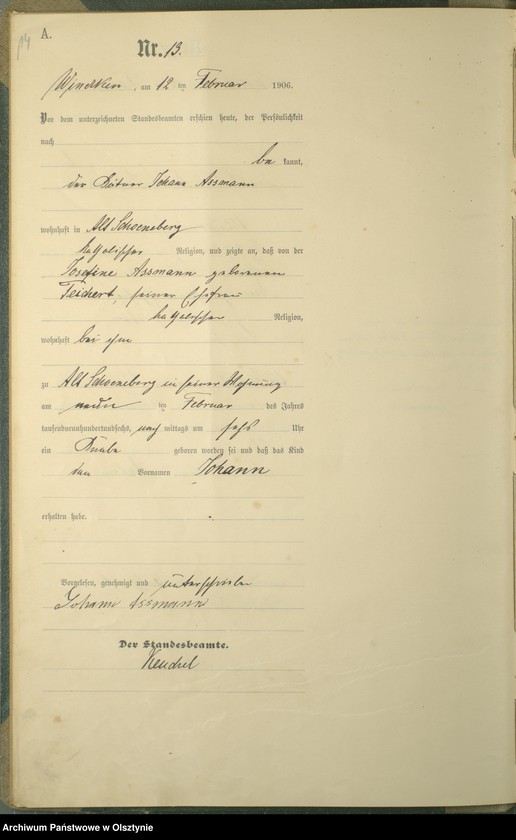 14
A.
Nr. 13.
Windtken, am 12 ten Februar 1906.
Vor dem unterzeichneten Standesbeamten erschien heute, der Persönlichkeit
nach
be kannt,
der Kätner Johann Assmann
wohnhaft in Alt Schoeneberg
katholischer Religion, und zeigte an, daß von der
Josefine Assmann geborenen
Teichert, seiner Ehefrau
katholischer Religion,
wohnhaft bei ihm
zu Alt Schoeneberg in seiner Wohnung
am ten Februar des Jahres
tausendneunhundertundsechs, nach mittags um sechs Uhr
ein Knabe geboren worden sei und daß das Kind
den Vornamen Johann
erhalten habe.
Vorgelesen, genehmigt und unterschrieben
Johann Assmann
Der Standesbeamte.
Archiwum Państwowe w Olsztynie